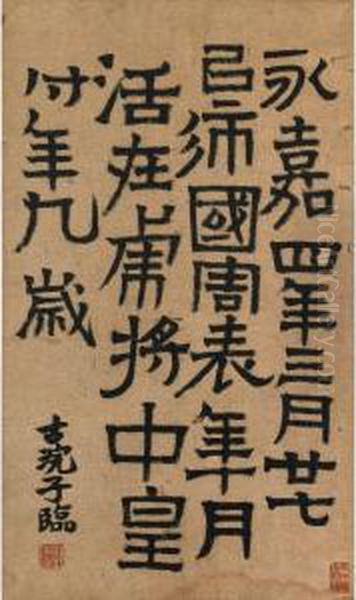 永嘉四年三月廿七
已 國周表年月
活在虜將中皇
付年九歲
古浣子臨